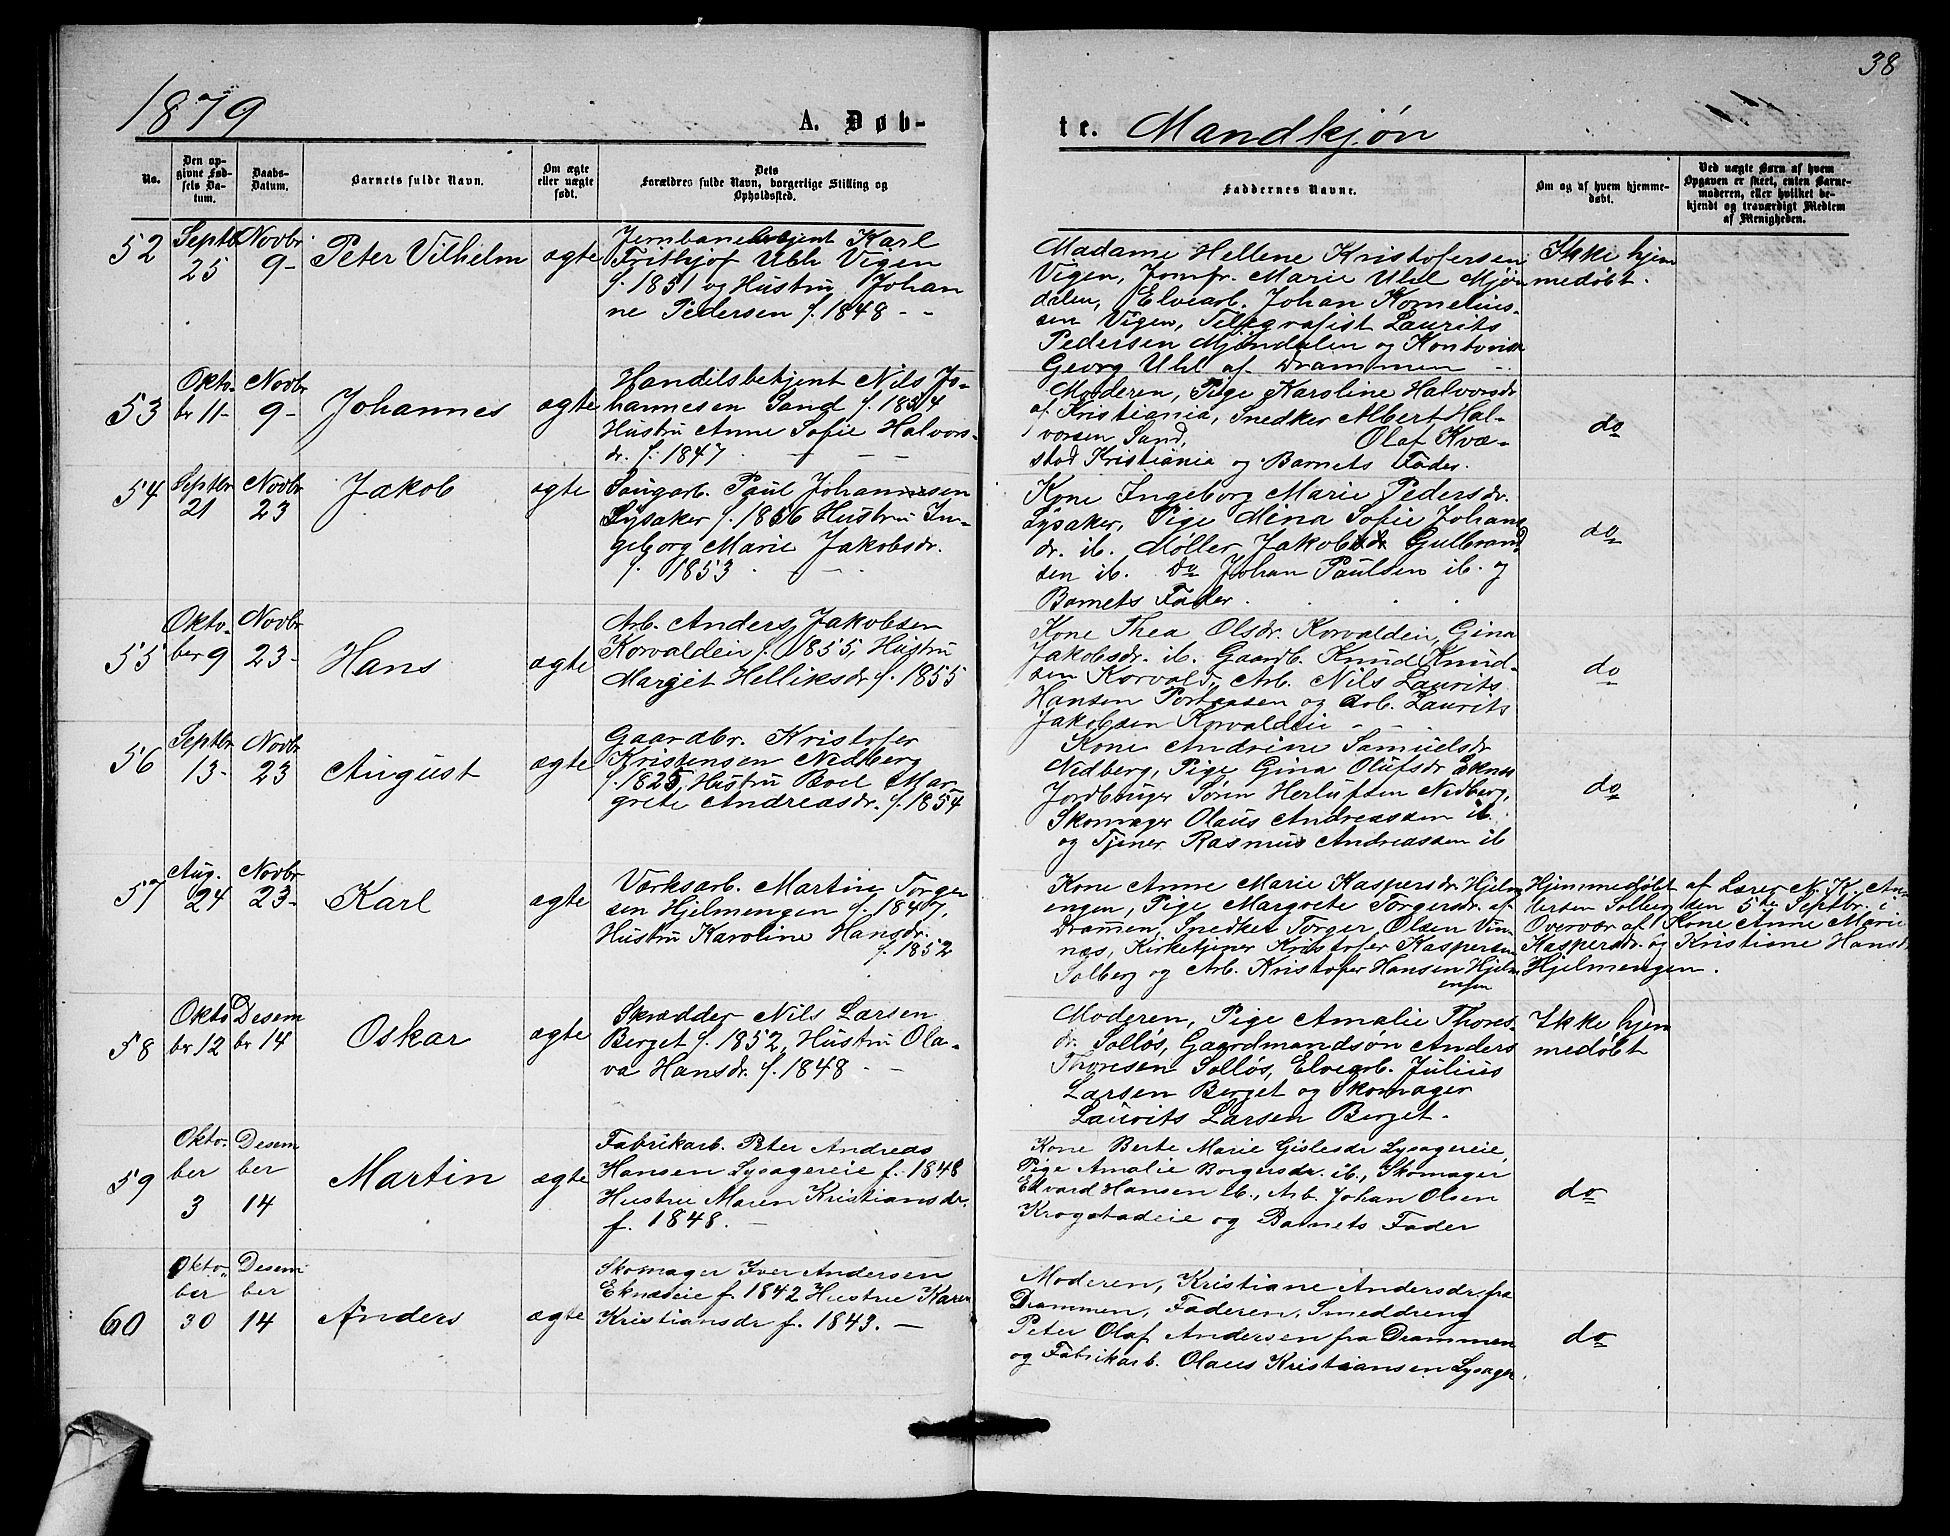 38
1879 A. Døb-
te. Mandkjøn
No.
Den op-
givne Fød-
sels Da-
tum.
Daabs-
Datum.
Barnets fulde Navn.
Om ægte
eller uægte
født.
Dets
Forældres fulde Navn, borgerlige Stilling og
Opholdssted.
Faddernes Navne.
Om og af hvem hjemme-
døbt.
Ved uægte Børn af hvem
Opgaven er skeet, enten Barne-
moderen, eller hvilket be-
kjendt og troværdigt Medlem
af Menigheden.
52
Septbr
25
Novbr.
9-
Peter Vilhelm
ægte
Jernbanebetjent Karl
Frithjof Uhl Vigen
f. 1851 og Hustru Johan
ne Pedersen f. 1848 - -
Madame Hellene Kristofersen
Vigen, Jomfr. Marie Uhl Mjøn
dalen, Elvearb. Johan Kornelius-
sen Vigen, Telegrafist Laurits
Pedersen Mjøndalen og Kontorist
Georg Uhl af Drammen -
Ikke hjem
medøbt.
53
Okto-
br 11-
Novbr
9-
Johannes
ægte
Handelsbetjent Nils Jo-
hannesen Sand f. 1854
Hustru Anne Sofie Halvors-
dr. f. 1847. - - -
Moderen, Pige Karoline Halvorsdr
af Kristiania, Snedker Albert Hal-
vorsen Sand, Olaf Kvæ-
stad Kristiania og Barnets Fader.
do
54
Septbr
21
Novbr
23
Jakob
ægte
Saugarb. Paul Johannesen
Lysaker f. 1856 Hustru In-
geborg Marie Jakobsdr.
f. 1853 . - .
Kone Ingeborg Marie Pedersdr.
Lysaker, Pige Mina Sofie Johans
dr. ib. Møller Jakob Gulbrand
sen ib. Do Johan Paulsen ib. og
Barnets Fader.
do
55
Okto-
ber 9
Novbr
23-
Hans
ægte
Arb. Anders Jakobsen
Korvaldein f. 1855, Hustru
Margit Helliksdr f. 1855
Kone Thea Olsdr. Korvaldein, Gina
Jakobsdr. ib. Gaardb. Knud Knud-
sen Korvald, Arb. Nils Laurits
Hansen Portaasen og Arb. Laurits
Jakobsen Korvaldeie - -
do
56
Septbr
13-
Novbr
23
August
ægte
Gaardbr. Kristofer
Kristensen Nedberg
f. 1825, Hustru Boel Mar-
grete Andreasdr. f. 1854
Kone Andrine Samuelsdr
Nedberg, Pige Gina Olufsdr Eknes
Jordbruger Søren Herlufsen Nedberg,
Skomager Olaus Andreassen ib.
og Tjener Rasmus Andreassen ib
do
57
Aug.
24
Novbr
23-
Karl
ægte
Værksarb. Martin Torger
sen Hjelmengen f. 1847,
Hustru Karoline Hansdr.
f. 1852
Kone Anne Marie Kaspersdr Hjelm
engen, Pige Margrete Torgersdr. af
Dramen, Snedker Torger Olsen Vin
næs, Kirketjener Kristofer Kaspersen
Solberg og Arb. Kristofer Hansen Hjelm
engen
Hjemmedøbt af Lærer N. K. An-
dersen Solberg den 5te Septbr. i
Overvær af Kone Anne Marie
Kaspersdr. og Kristiane Hansdr
Hjelmengen.
58
Okto
br 12
Desem
br 14
Oskar
ægte
Skrædder Nils Larsen
Berget f. 1852, Hustru Ola-
va Hansdr. f. 1848 - -
Moderen, Pige Amalie Thores-
dr. Solløs, Gaardmandsøn Anders
Thoresen Solløs, Elvearb. Julius
Larsen Berget og Skomager
Laurits Larsen Berget.
Ikke hjem
medøbt
59
Okto-
ber
3
Desem
ber
14
Martin
ægte
Fabrikarb. Peter Andreas
Hansen Lysagereie f. 1848
Hustru Maren Kristiansdr.
f. 1848. -
Kone Berte Marie Gislesdr Lysagereie,
Pige Amalie Borgersdr. ib., Skomager
Edvard Hansen ib., Arb. Johan Olsen
Krogstadeie og Barnets Fader
do
60
Okto-
ber
30
Desem
ber
14
Anders
ægte
Skomager Iver Andersen
Eknæseie f. 1842 Hustru Karen
Kristiansdr f. 1843. -
Moderen, Kristiane Andersdr fra
Drammen, Faderen, Smeddreng
Peter Olaf Andersen fra Drammen
og Fabrikarb. Olaus Kristiansen Lysager
do